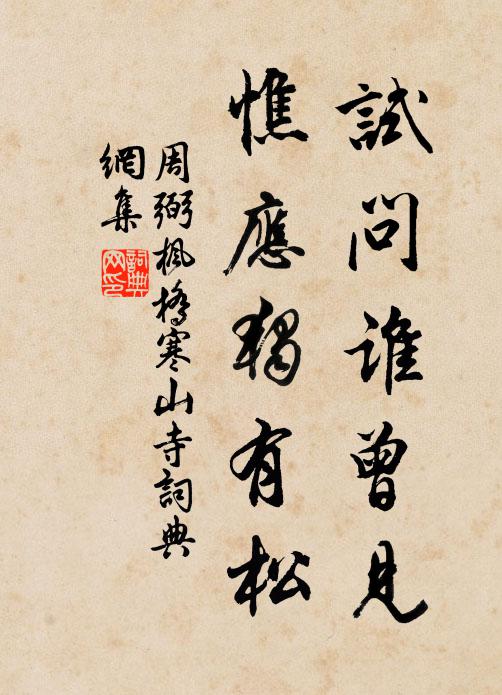 試問誰曾見
憔應獨有松
周弼楓橋寒山寺詞典
網集
詞典
网印